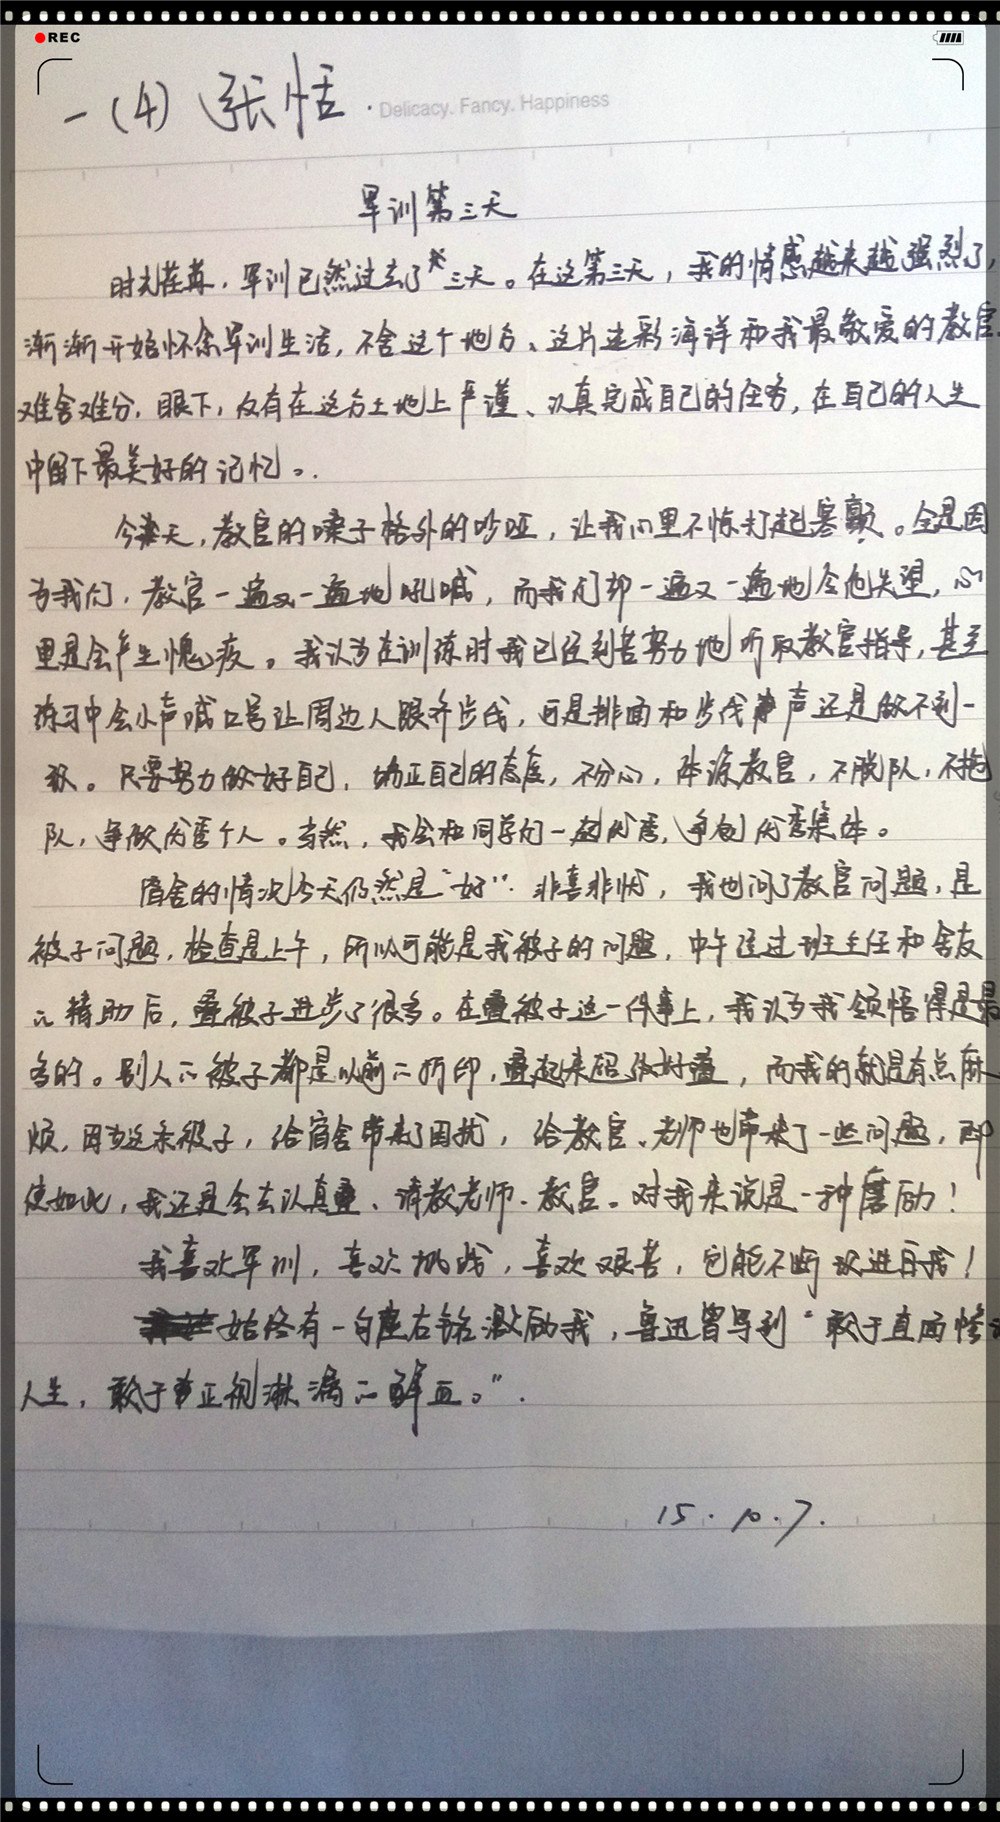 REC
一(4) 张恬.
Delicacy. Fancy. Happiness
军训第三天
时光荏苒，军训已然过去了三天。在这第三天，我的情感越来越强烈了，
渐渐开始怀念军训生活，不舍这个地方、这片迷彩海洋和我最敬爱的教官
难舍难分，眼下，仅有在这方土地上严谨、认真完成自己的任务，在自己的人生
中留下最美好的记忆。
今天，教官的嗓子格外的吵哑，让我心里不惊打起寒颤。全是因
为我们，教官一遍又一遍地吼喊，而我们却一遍又一遍地令他失望，心
里是会产生愧疚。我认为在训练时我已经刻苦努力地听取教官指导，甚至
练习中会小声喊口号让周边人跟齐步伐，可是排面和步伐声还是做不到一
致。只要努力做好自己，端正自己的态度，不分心，体谅教官，不脱队，不拖
队，争做优秀个人。当然，我会和同学们一起优秀，争创优秀集体。
宿舍的情况今天仍然是“好”. 非喜非忧，我也问了教官问题，是
被子问题，检查是上午，所以可能是我被子的问题，中午经过班主任和舍友
的精助后，叠被子进步了很多。在叠被子这一件事上，我认为我领悟得是最
多的。别人的被子都是以前的折印，叠起来超级好叠，而我的就是有点麻
烦，因为这条被子，给宿舍带来了困扰，给教官、老师也带来了一些问题，即
使如此，我还是会去认真叠、请教老师、教官。对我来说是一种磨励！
我喜欢军训，喜欢挑战，喜欢艰苦，它能不断改进自我！
始终有一句座右铭激励我，鲁迅曾写到“敢于直面惨淡
人生，敢于正视淋漓的鲜血。”.
15.10.7.